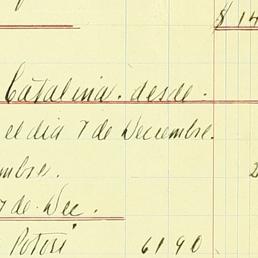 $ 14
Catalina. desde.
el dia 7 de Deciembre.
mbre.
7 de Dec.
Potosi 6190